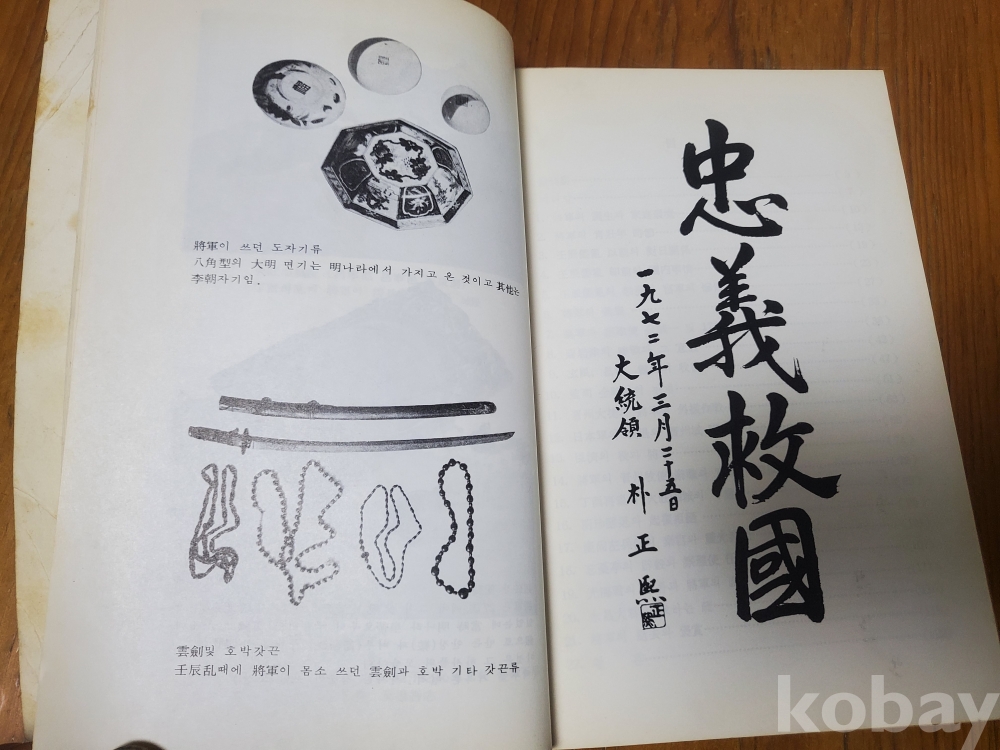 將軍이 쓰던 도자기류
八角型의 大明 면기는 明나라에서 가지고 온 것이고 其他는
李朝자기임.
雲劍및 호박갓끈
壬辰乱때에 將軍이 몸소 쓰던 雲劍과 호박 기타 갓끈류
忠義救國
一九七二年 三月二十五日
大統領 朴正熙
kobay